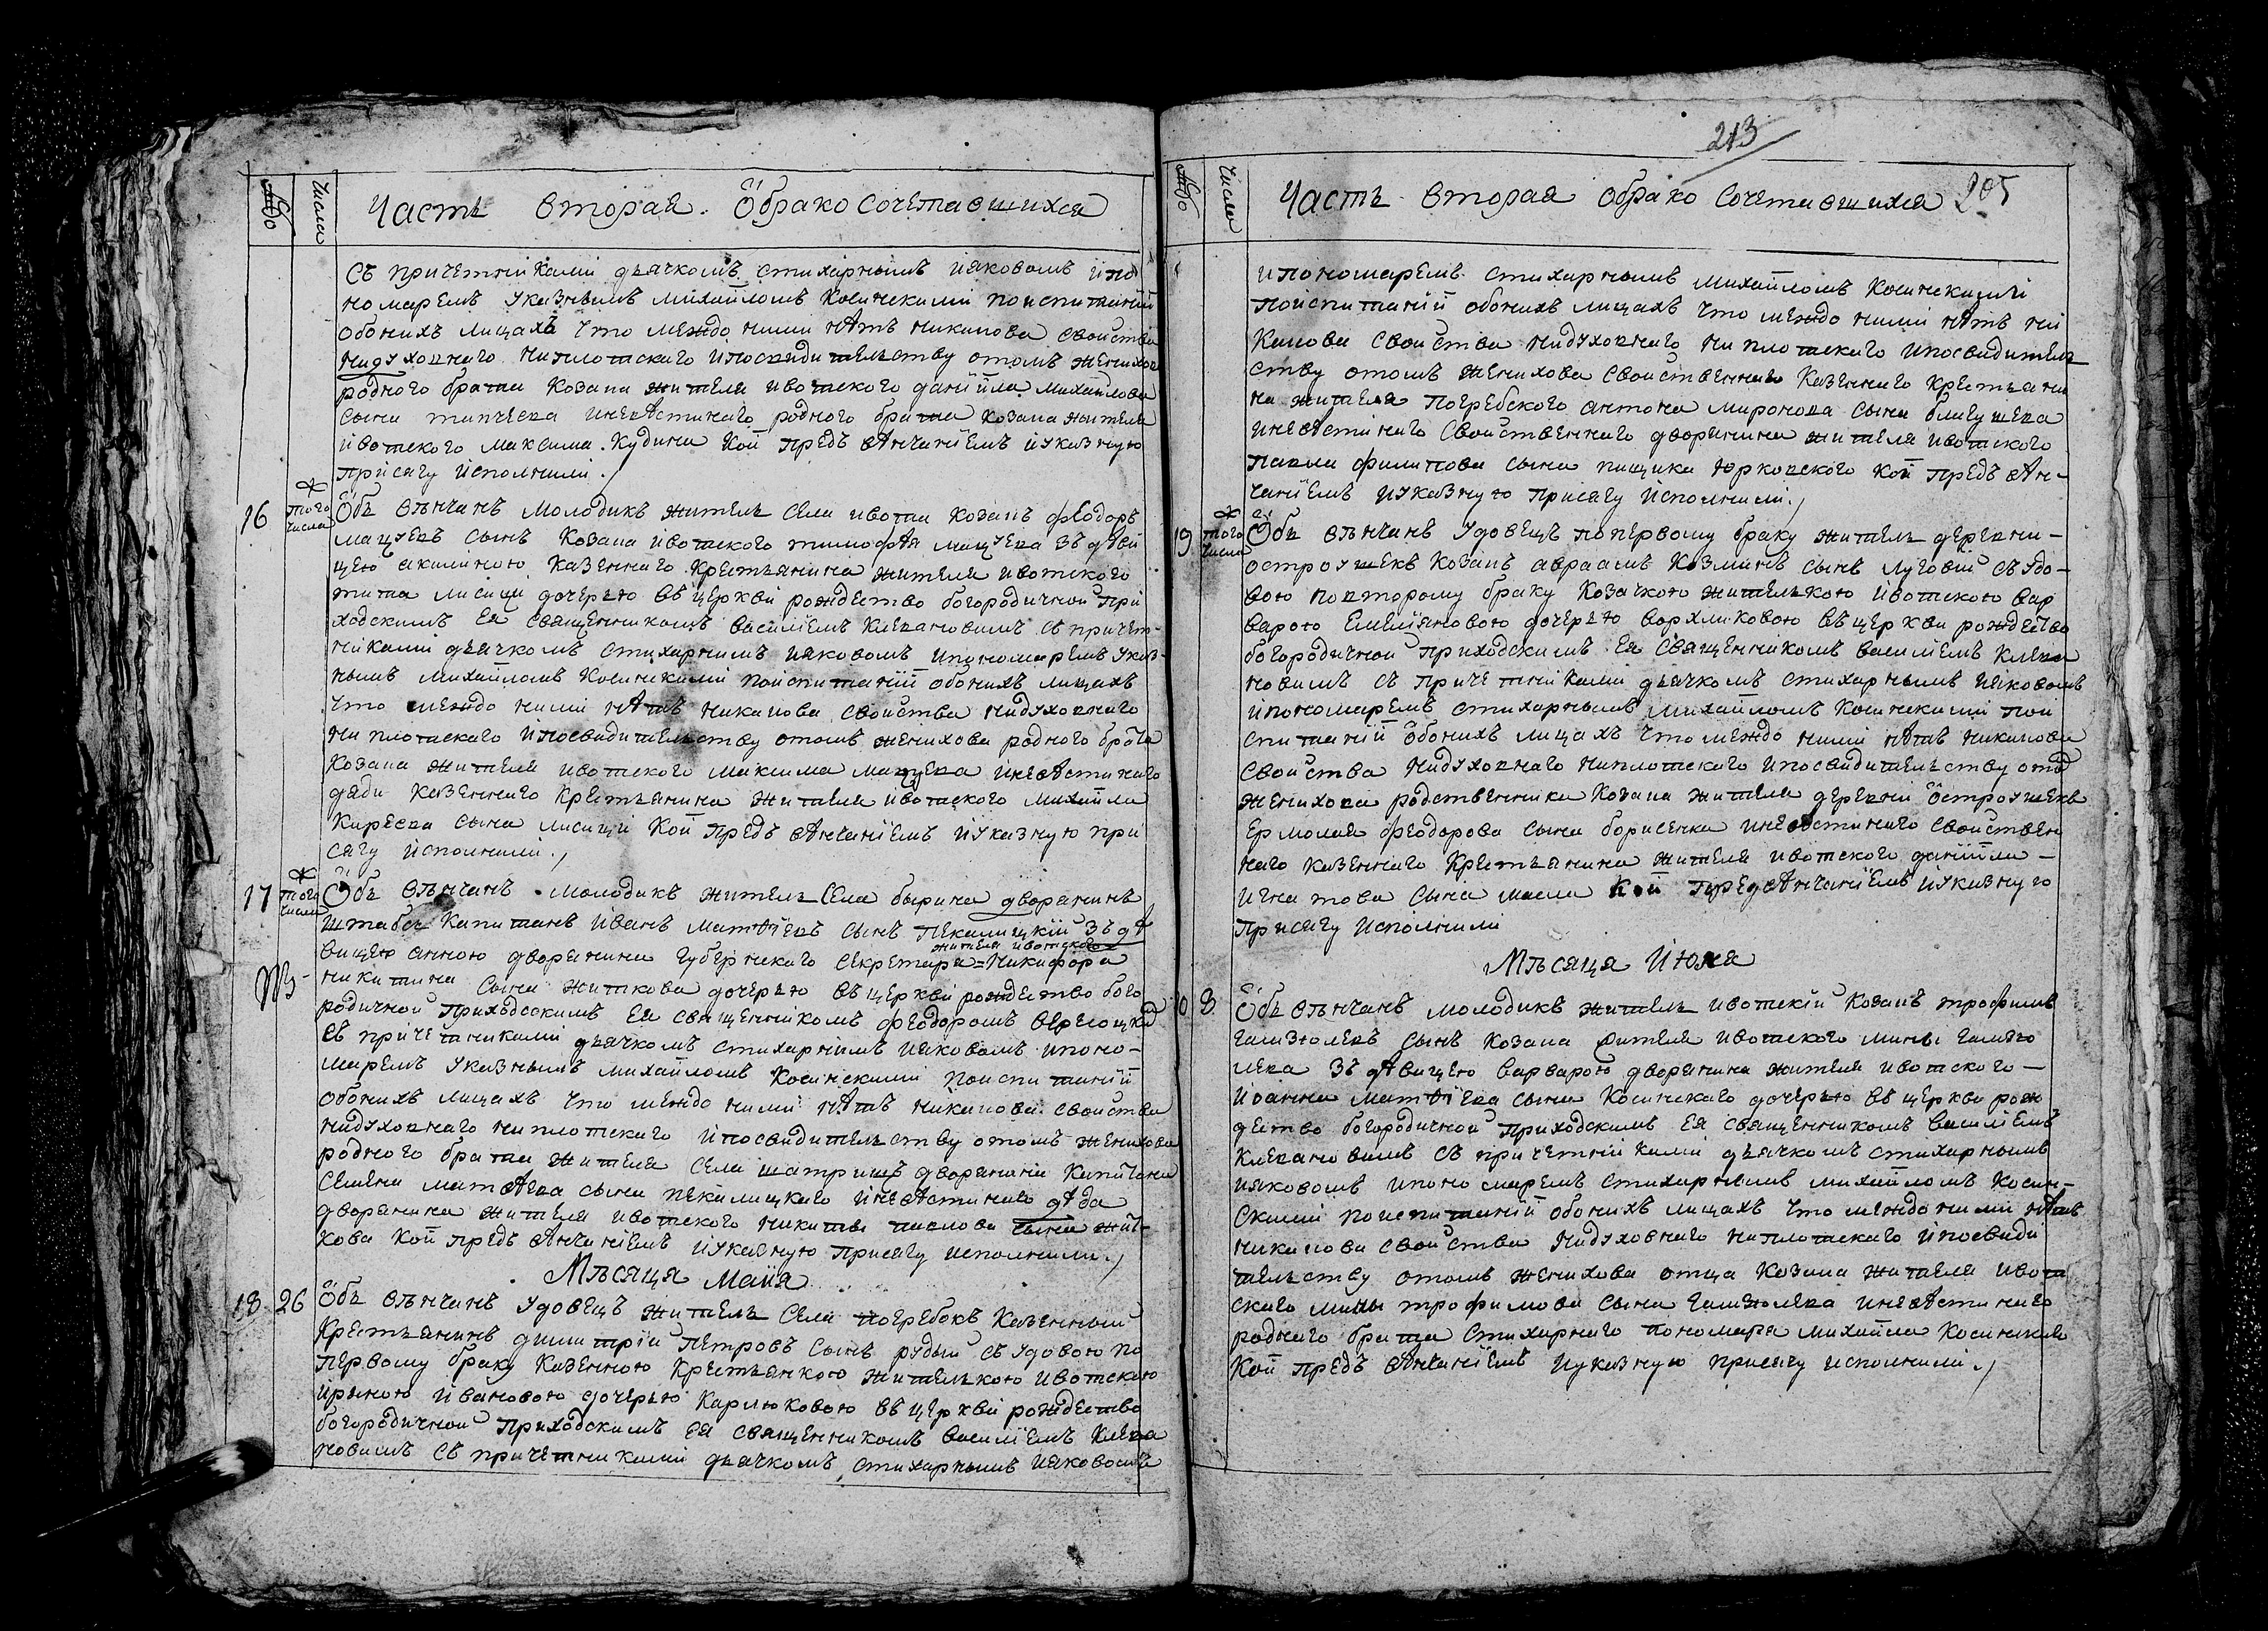 №
Числа
Часть вторая. О бракосочетавшихся
Съ причетниками дьячкомъ стихарнымъ Иаковомъ и по
номаремъ указнымъ Михайломъ Косинскими поиспитаний
обоихъ лицахъ что междо ними нѣтъ никакова свойства
нидуховнаго ниплотскаго и посвидительству отомъ женихова
родного брата козака жителя ивотского даниила михайлова
сына иневѣстинаго родного брата козака жителя
ивотского максима Кудина кои предъ вѣнчаниемъ и указную
присягу исполнили.
16 того числа
Обвѣнчанъ молодикъ житель села ивотки козакъ феодоръ
мацуевъ сынъ козака ивотского тимофѣя мацуева зъ дѣви
цею акилиною казенного крестьянина жителя ивотского
тита лисици дочерью въ церкви рождество богородичной при
ходскимъ ея священникомъ василиемъ Клевановимъ съ причет-
никами дьячкомъ стихарнимъ иаковомъ и пономаремъ указ-
нымъ михайломъ Косинскими поиспитаний обоихъ лицахъ
что междо ними нѣтъ никакова свойства нидуховнаго
ни плотскаго и посвидительству отомъ женихова родного брата
козака жителя ивотского максима мацуева и невѣстинаго
дяди казенного крестьянина жителя ивотского михайла
Киреева сына лисици кои предъ вѣнчаниемъ и указную при
сягу исполнили.
17 того числа
Обвѣнчанъ молодикъ житель села бырина дворянинъ
штабсъ капитанъ иванъ матѳиевъ сынъ пекалицкий зъ дѣ
жителя ивотского
вицею анною дворянина губернского секретаря никифора
никитина сына житкова дочерью въ церкви рождество бого
родичной приходскимъ ея священникомъ феодоромъ
съ причетниками дьячкомъ стихарнимъ иаковомъ и поно-
маремъ указнымъ михайломъ Косинскими поиспитаний
обоихъ лицахъ что междо ними нѣтъ никакова свойства
нидуховнаго ниплотскаго и посвидительству отомъ женихова
родного брата жителя села шатрищъ дворянина капитана
Семена матѳѣева сына пекалицкаго и невѣстинаго дѣда
дворянина жителя ивотского никиты павлова сына жит-
кова кои предъ вѣнчаниемъ и указную присягу исполнили.
Мѣсяца Маия
18 26
Обвѣнчанъ удовецъ житель села погребокъ казенный
крестьянинъ димитрий петровъ сынъ рудый съ удовою по
первому браку казенною крестьянкою жителькою ивотскою
ириною ивановою дочерью Карлюковою въ церкви рождество
богородичной приходскимъ ея священникомъ василиемъ Клева
новимъ съ причетниками дьячкомъ стихарнымъ иаковомъ
213
205
№
Числа
Часть вторая о бракосочетавшихся
и пономаремъ стихарнымъ михайломъ Косинскими
поиспитаний обоихъ лицахъ что междо ними нѣтъ ни
какова свойства нидуховнаго ни плотскаго и посвидитель
ству отомъ женихова свойственнаго казенного крестьяни
на жителя погребского антона миронова сына
и невѣстинаго свойственнаго дворянина жителя ивотского
павла филипова сына пищика юрковского кои предъ вѣн-
чаниемъ и указную присягу исполнили.
19 того числа
Обвѣнчанъ удовецъ поперво​му браку житель деревни-
остроушекъ козакъ авраамъ козминъ сынъ луговий съ удо-
вою повторому браку козачкою жителькою ивотскою вар
варою емелияновою дочерью ворхликовою въ церкви рождество
богородичной приходскимъ ея священникомъ василиемъ Клева
новимъ съ причетниками дьячкомъ стихарнымъ иаковомъ
и пономаремъ стихарнымъ михайломъ Косинскими пои
спитаний обоихъ лицахъ что междо ними нѣтъ никакова
свойства нидуховнаго ниплотскаго и посвидительству отом
женихова родственника козака жителя деревни остроушекъ
ермолая феодорова сына борисенка и невѣстинаго свойствен
наго казенного крестьянина жителя ивотского даниила-
игнатова сына кои предъ вѣнчаниемъ и указную
присягу исполнили
Мѣсяца Июня
8
Обвѣнчанъ молодикъ житель ивотский козакъ трофимъ
гамзюлевъ сынъ козака жителя ивотского мины гамзю
лева зъ дѣвицею варварою дворянина жителя ивотского-
Иоанна матѳиева сына Косинскаго дочерью въ церкви рож
дество богородичной приходскимъ ея священникомъ василиемъ
Клевановимъ съ причетниками дьячкомъ стихарнымъ
иаковомъ и пономаремъ стихарнымъ михайломъ Косин-
скими поиспитаний обоихъ лицахъ что междо ними нѣтъ
никакова свойства нидуховнаго ниплотскаго и посвиди
тельству отомъ женихова отца козака жителя ивот
скаго мины трофимова сына гамзюлева и невѣстинаго
роднаго брата стихарнаго пономаря михайла Косинскаго
кои предъ вѣнчаниемъ и указную присягу исполнили.